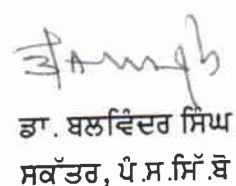 ਡਾ. ਬਲਵਿੰਦਰ ਸਿੰਘ
ਸਕੱਤਰ, ਪੰ.ਸ.ਸਿੱ.ਬੋ